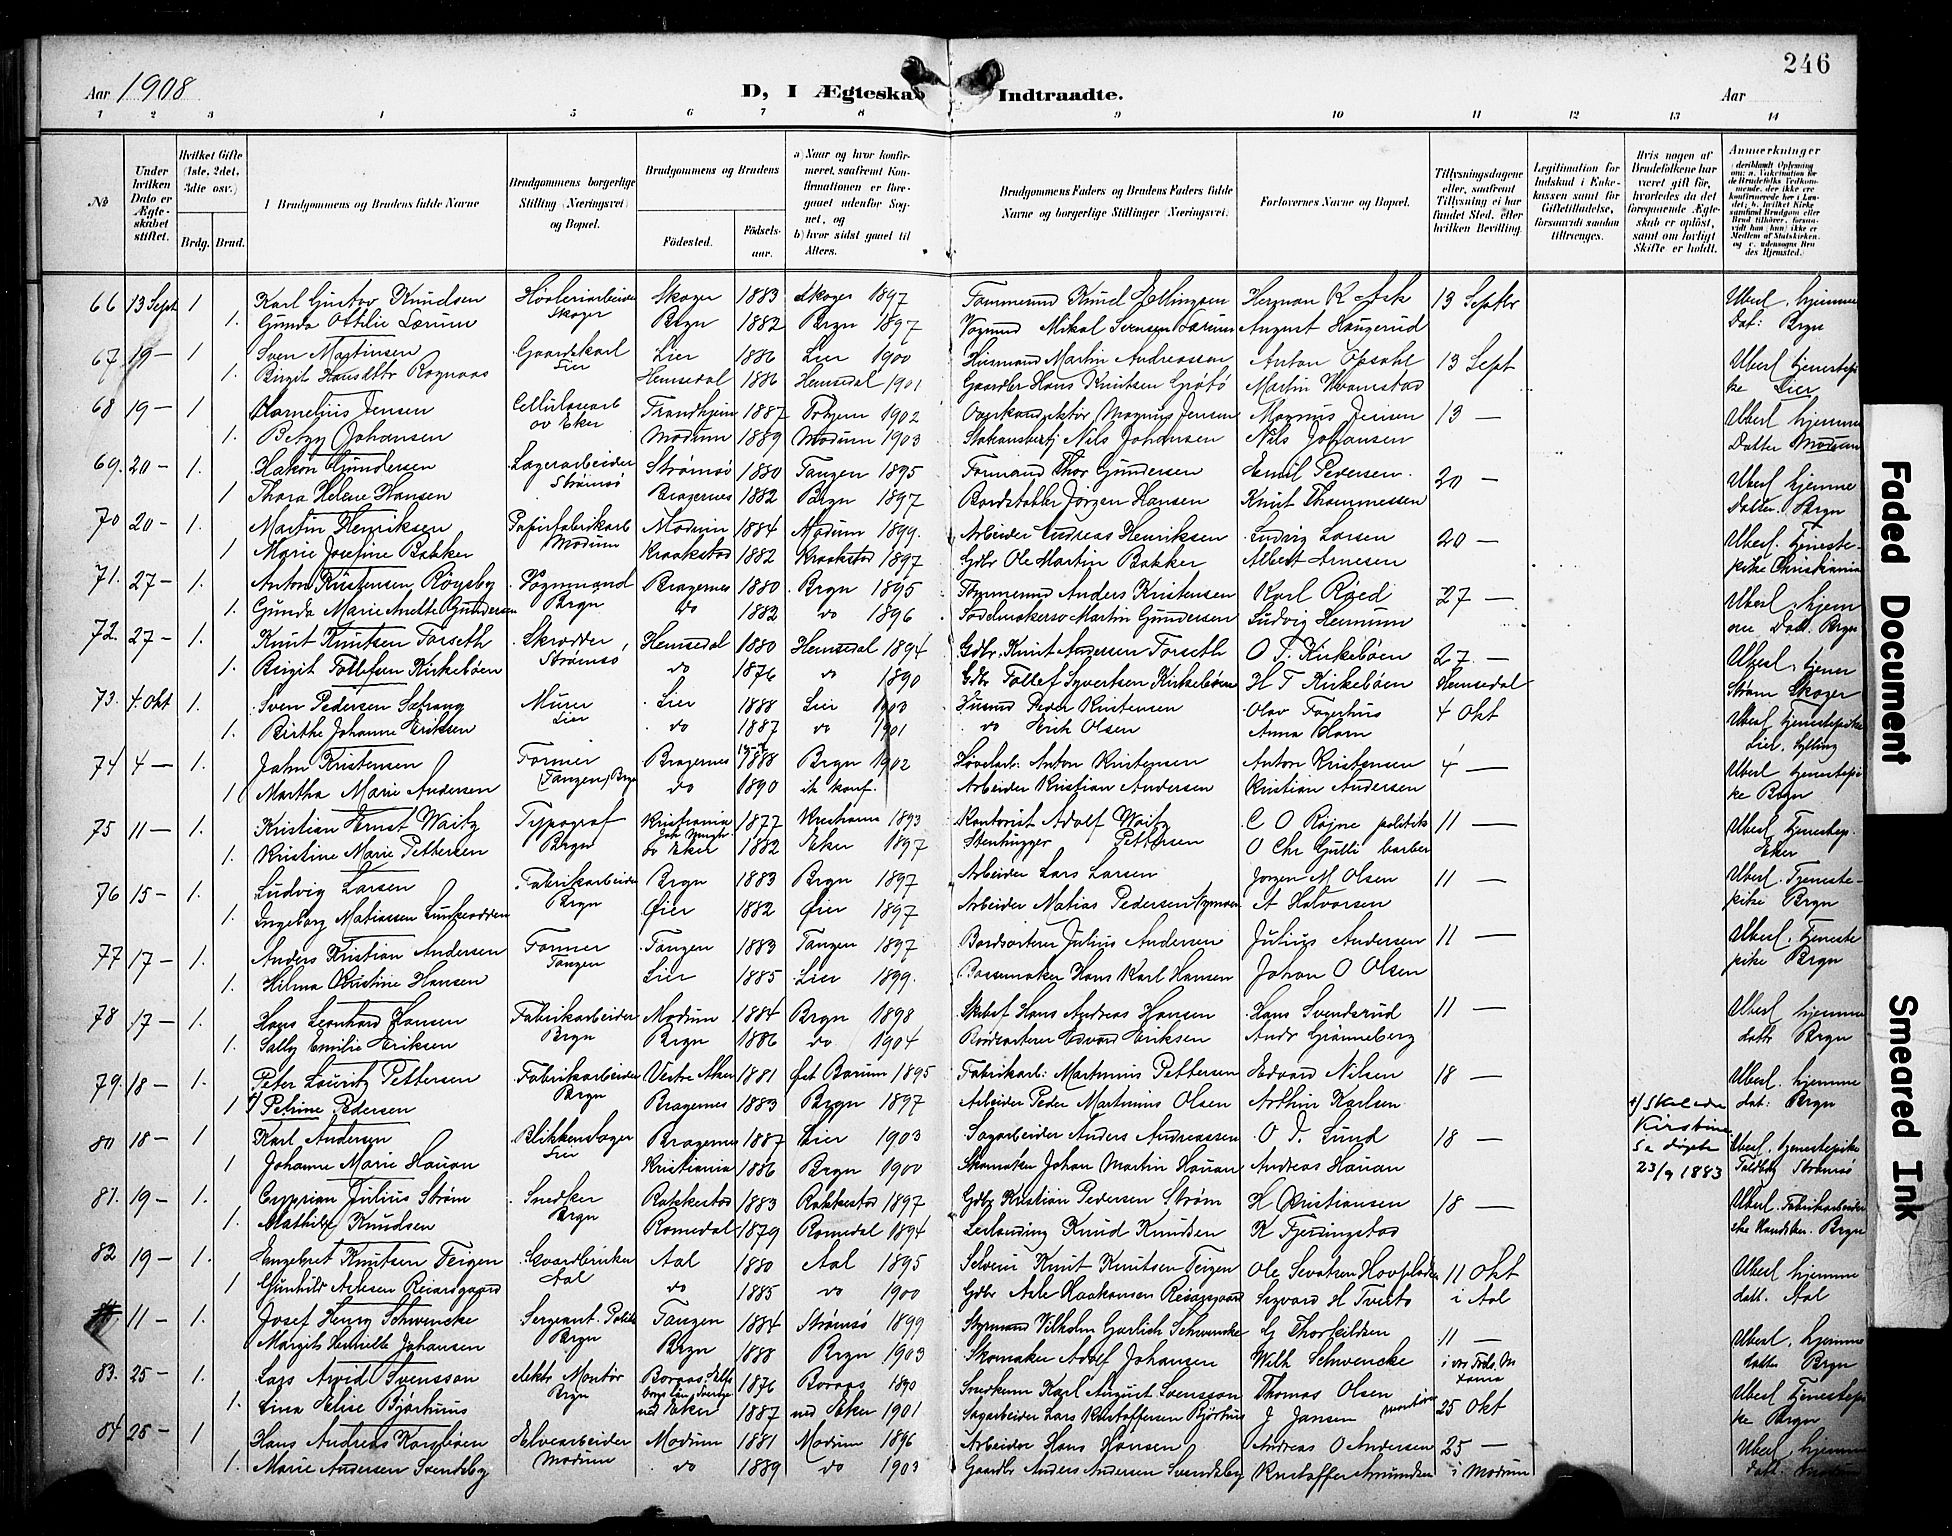 246
Aar 1908
D, I Ægteskab Indtraadte.
Aar
1 2 3 4 5 6 7 8 9 10 11 12 13 14
No
Under hvilken Dato er Ægteskabet stiftet.
Hvilket Gifte (1ste, 2det, 3die osv.)
Brdg. Brud.
Brudgommens og Brudens fulde Navne
Brudgommens borgerlige Stilling (Næringsvei) og Bopæl.
Brudgommens og Brudens
Födested. Födselsaar.
a) Naar og hvor konfirmeret, saafremt Konfirmationen er foregaaet udenfor Sognet, og
b) hvor sidst gaaet til Alters.
Brudgommens Faders og Brudens Faders fulde Navne og borgerlige Stillinger (Næringsvei).
Forlovernes Navne og Bopæl.
Tillysningsdagene eller, saafremt Tillysning ei har fundet Sted, efter hvilken Bevilling.
Legitimation for Indskud i Enkekassen samt for Giftetilladelse, forsaavidt saadan tiltrænges.
Hvis nogen af Brudefolkene har været gift för, hvorledes da det foregaaende Ægteskab er oplöst, samt om lovligt Skifte er holdt.
Anmærkninger
66 13 Sept 1 Karl Gustav Knudsen Høvleriarbeider Skoger Skoger 1883 Skoger 1897 Tømmermd Knud Ellingsen Herman R Ask 13 Septbr Uberl. hjemme
1. Gunda Ottilie Lærum Brgn 1882 Brgn 1897 Vognmd Mikal Sørensen Lærum August Haugerud Dat: Brgn
67. 19 — 1 Sven Martinsen Gaardskarl Lier Lier 1886 Lier 1900 Husmand Martin Andreassen Anton Opsahl 13 Sept
1. Birgit Hansdtr Rognaas Hemsedal 1886 Hemsedal 1901 Gaardbr Hans Knutsen Grøtö Martin Kvamstad ke Lier
68 19 — 1 Kornelius Jensen Cellulosearb öv Eker Trondhjem 1887 Trhjem 1902 Magnus Jensen Magnus Jensen 13 — Uberl hjemme
1. Betzy Johansen Modum 1889 Modum 1903 Nils Johansen Nils Johansen Datter Modum
69. 20 — 1. Hakon Gundersen Lagerarbeider Strømsö Strømsö 1880 Tangen 1895 Formand Thor Gundersen Emil Pedersen. 20 — Uberl hjemme
1 Thora Helene Hansen Bragernes 1882 Brgn 1897 Bordstabler Jörgen Hansen Knut Thommessen Datter. Brgn
70 20 — 1. Martin Henriksen Papirfabrikarb Modum Modum 1884 Modum 1899. Arbeider Andreas Henriksen Ludvig Larsen 20 — Uberl. Tjeneste-
1 Marie Josefine Bakker Kraakstad 1882 Kraakstad 1897 Gdbr Ole Martin Bakker Albert Arnesen pike Christiania
71. 27 — 1. Anton Kristensen Röysby Vognmand Brgn Bragernes 1880 Brgn 1895 Tømmermd Anders Kristensen Karl Röed 27 — Uberl. hjem
1. Gunda Marie Anette Gundersen do 1882 do 1896 Martin Gundersen Ludvig Hennum me Datt. Brgn
72. 27 — 1. Knut Knutsen Forseth Skrædder Strømsö Hemsedal 1880 Hemsedal 1894 Gdbr. Knut Andersen Forseth O T. Kirkebøen 27 — Uberl. tjener
1. Birgit Tollefsen Kirkebøen do 1876 do 1890 Gdbr Tollef Syvertsen Kirkebøen H T Kirkebøen Hemsedal Strøm Skoger
73. 4. Okt 1. Sven Pedersen Murer Lier Lier 1888 Lier 1903 Husmd Peder Kristensen Olav Fagerhus 4 Okt Uberl. Tjenestepike
1. Birthe Johanne Eriksen do 1887 do 1901 do Erik Olsen Anna Lier. Sylling
74 4 — 1. John Kristensen Former (Tangen) Brgn Bragernes 1888 Brgn 1902 Høvelarb. Anton Kristensen Anton Kristensen 4 — Uberl tjenestepi
1 Martha Marie Andersen do 1890 ik konf. Arbeider Kristian Andersen Kristian Andersen ke Brgn
75 11 — 1. Kristian Ernst Waitz Typograf Brgn Kristiania 1877 Kristiania 1893 Kontorist Adolf Waitz C O Röjne politik 11 — Uberl Tjenestep.
1. Kristine Marie Pettersen öv Eker 1882 Eker 1897 Stenhugger Pettersen O Chr Gulli barber Eker
76 15 — 1. Ludvig Larsen Fabrikarbeider Brgn Brgn 1883 Brgn 1897 Arbeider Lars Larsen Jörgen M Olsen 11 — Uberl. Tjeneste-
1. Ingeborg Matiassen Øier 1882 Øier 1897 Arbeider Matias Pedersen A Halvorsen pike Brgn
77 17 — 1. Anders Kristian Andersen Former Tangen Tangen 1883 Tangen 1897 Bordsorterer Julius Andersen Julius Andersen 11 — Uberl. Tjeneste
1. Hilma Kristine Hansen Lier 1885 Lier 1899. Bøssemaker Hans Karl Hansen Johan O Olsen pike Brgn
78 17 — 1. Hans Leonhard Hansen Fabrikarbeider Brgn Modum 1884 Brgn 1898 Hans Andreas Hansen Hans Svendsrud 11 — Uberl hjemme
1. Sally Emilie Eriksen Brgn 1886 do 1904 Edvard Eriksen Andr Grönneberg dattr Brgn
79. 18 — 1. Peter Lauritz Pettersen Fabrikarbeider Brgn Vestre Aker 1881 Øst Bærum 1895 Fabrikarb: Martinius Pettersen Edvard Nilsen 18 — Uberl. hjemme
1 Petrine Pedersen Bragernes 1883 Brgn 1897 Arbeider Peder Martinius Olsen Arthur Karlsen Dat: Brgn
Kirstine
23/9 1883
80 18 — 1 Karl Andersen Blikkenslager Lier Bragernes 1887 Lier 1903 Sagarbeider Anders Andreassen O. T. Lund 18 — Uberl. tjenestepike
1 Johanne Marie Hauan Kristiania 1886 Brgn 1900 Skomaker Johan Martin Hauan Andreas Hauan Strømsö
81. 19 — 1. Cyprian Julius Strøm Snedker Brgn Rakkestad 1883 Rakkestad 1897 Gdbr Kristian Pedersen Strøm H Kristiansen 18 — Uberl. Fabrikarbeider
1. Mathilde Knudsen Romedal 1879 Romedal 1894 Knud Knudsen K Fjeringstad Brgn
82 19 — 1. Engebret Knutsen Teigen Aal Aal 1880 Aal 1895 Selveier Knut Knutsen Teigen Ole Sevatsen 11 Okt Uberl hjemme
1 Gunhild Aslesen do 1885 do 1900 Gdbr Asle Haakonsen Sigvard H Tveito i Aal datt. Aal
11 — 1. Josef Henry Schwencke Sergeant. Politi Brgn Tangen 1884 Strømsö 1899 Styrmand Vilhelm Gerlich Schwencke G Thorkildsen 11 — Uberl. hjemme
Margit Henriette Johansen Brgn 1888 Brgn 1903 Skomaker Adolf Johansen Wilh Schwencke datter Brgn
83. 25 — 1. Lars Arvid Svensson elektr Montør Brgn Boraas, Elfsborgs län, Sverige 1876 Boraas 1890 Karl August Svensson Thomas Olsen 25 Okt Uberl Tjenestepi
1. Lina Elise Bjørhuus ned Eker 1887 ned Eker 1901 Sagarbeider Lars Kristoffersen Bjørhus J Jansen ke Brgn
84 25 — 1 Hans Andreas Elvearbeider Modum Modum 1881 Modum 1896 Arbeider Hans Hansen Andreas O Andersen 25 — Uberl hjemme
1. Marie Andersen Svendsby do 1889 do 1903 Gaardbr Anders Andersen Svendsby Kristoffer Amundsen i Modum datt.
Faded Document
Smeared Ink